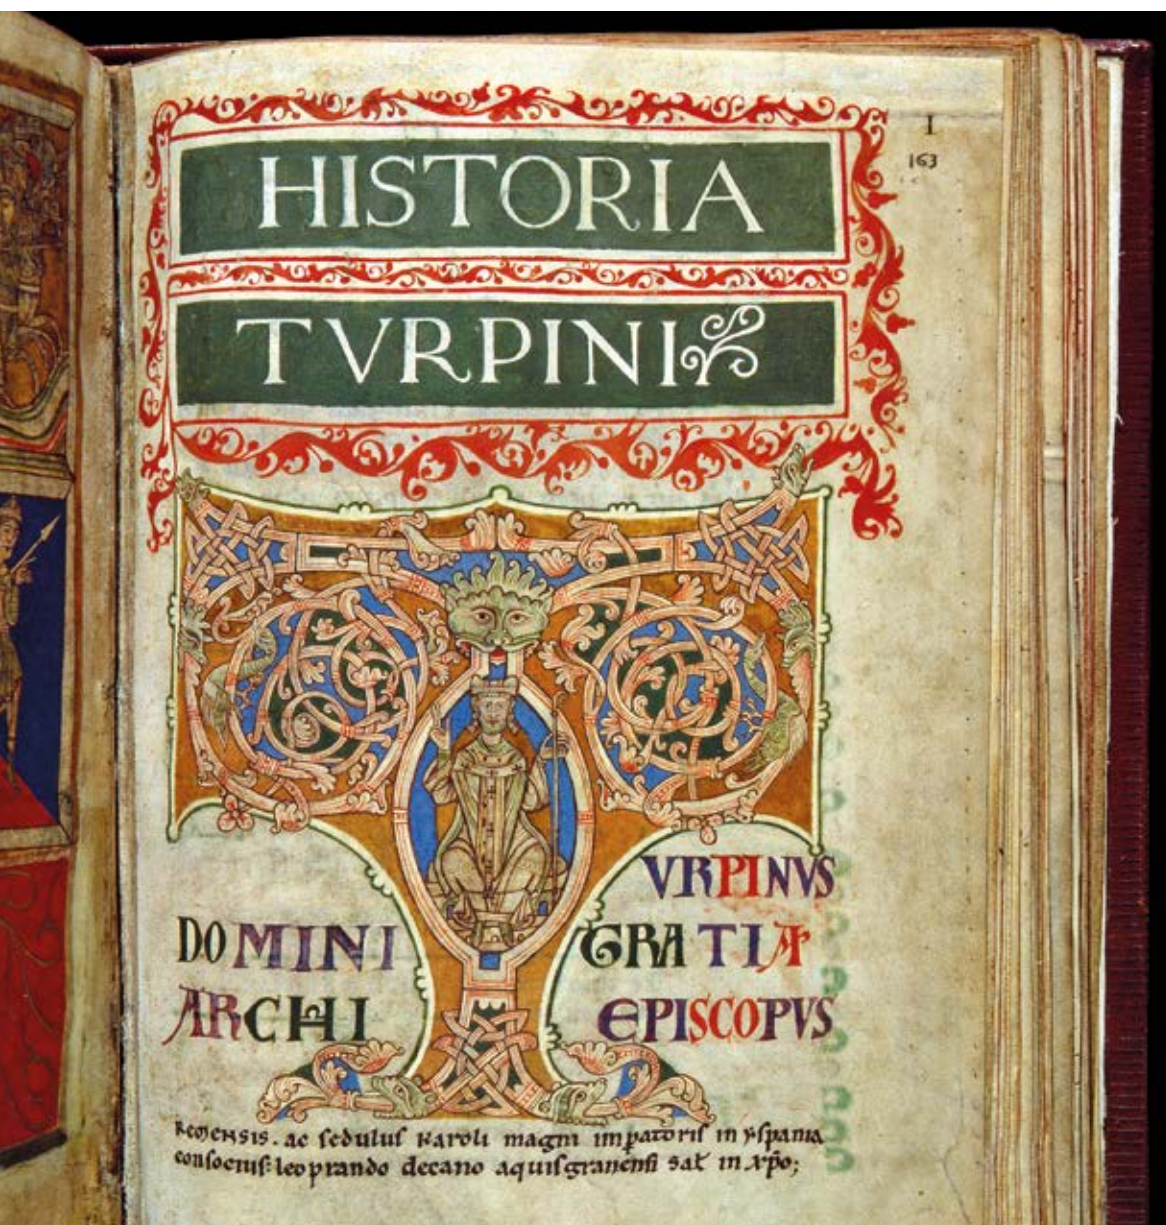 I
163
HISTORIA
TVRPINI
TVRPINVS
DOMINI GRATIA
ARCHI EPISCOPVS
Remensis. ac sedulus Karoli magni imꝑatoris in yspania
consocius: leoprando decano aquisgranensi sal̄ in xp̄o;